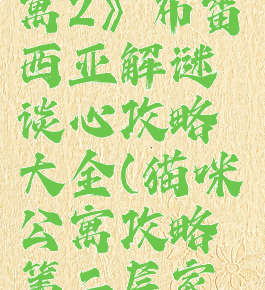 寓2》布雷
西亚解谜
谈心攻略
大全(猫咪
公寓攻略
第二层家